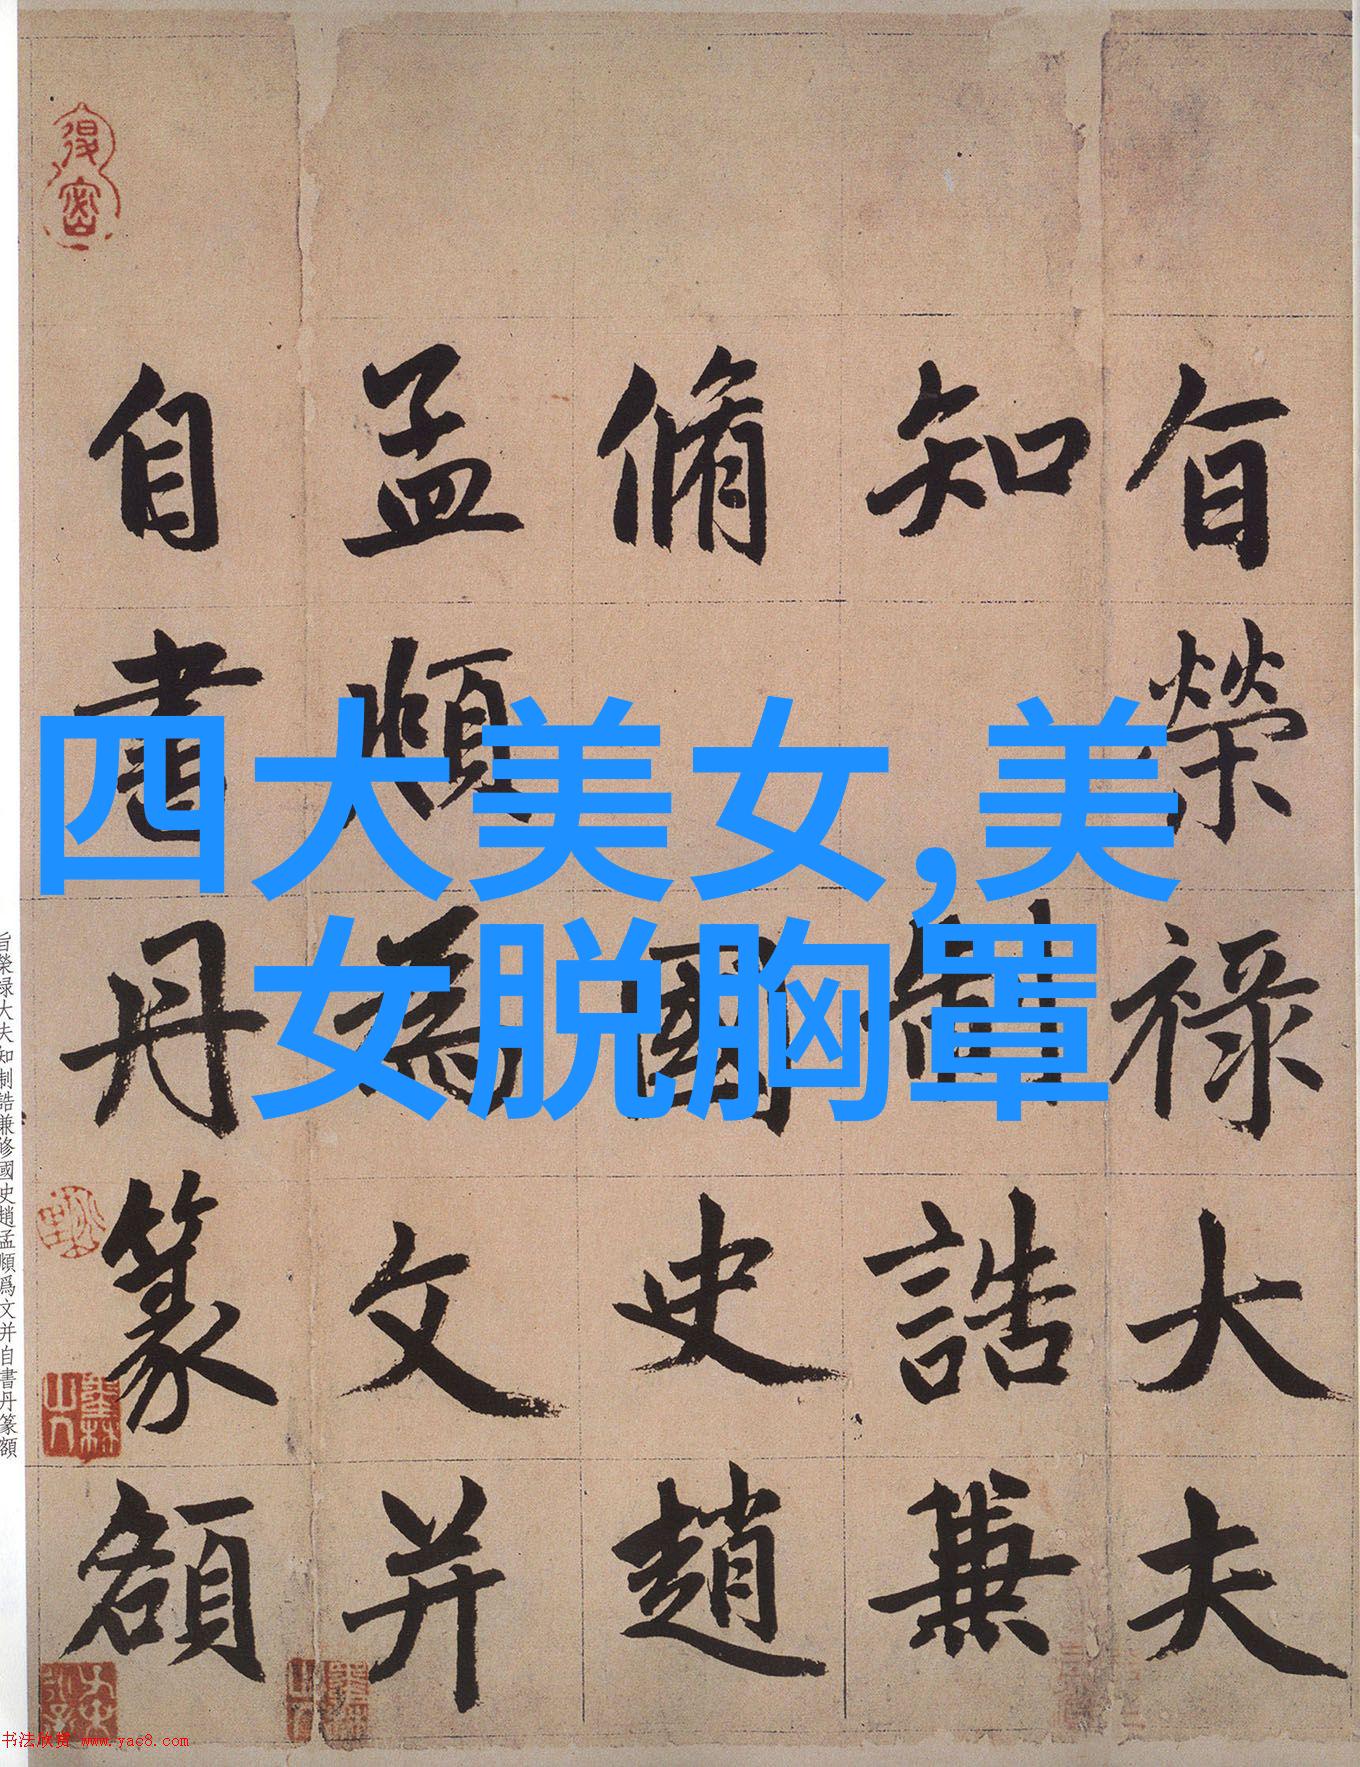 旨榮祿大夫
知制誥兼
脩國史趙
孟頫為文并
自書丹篆額
四大美女,美
女脱胸罩
旨榮祿大夫知制誥兼修國史趙孟頫爲文并自書丹篆額
书法欣赏 www.yac8.com